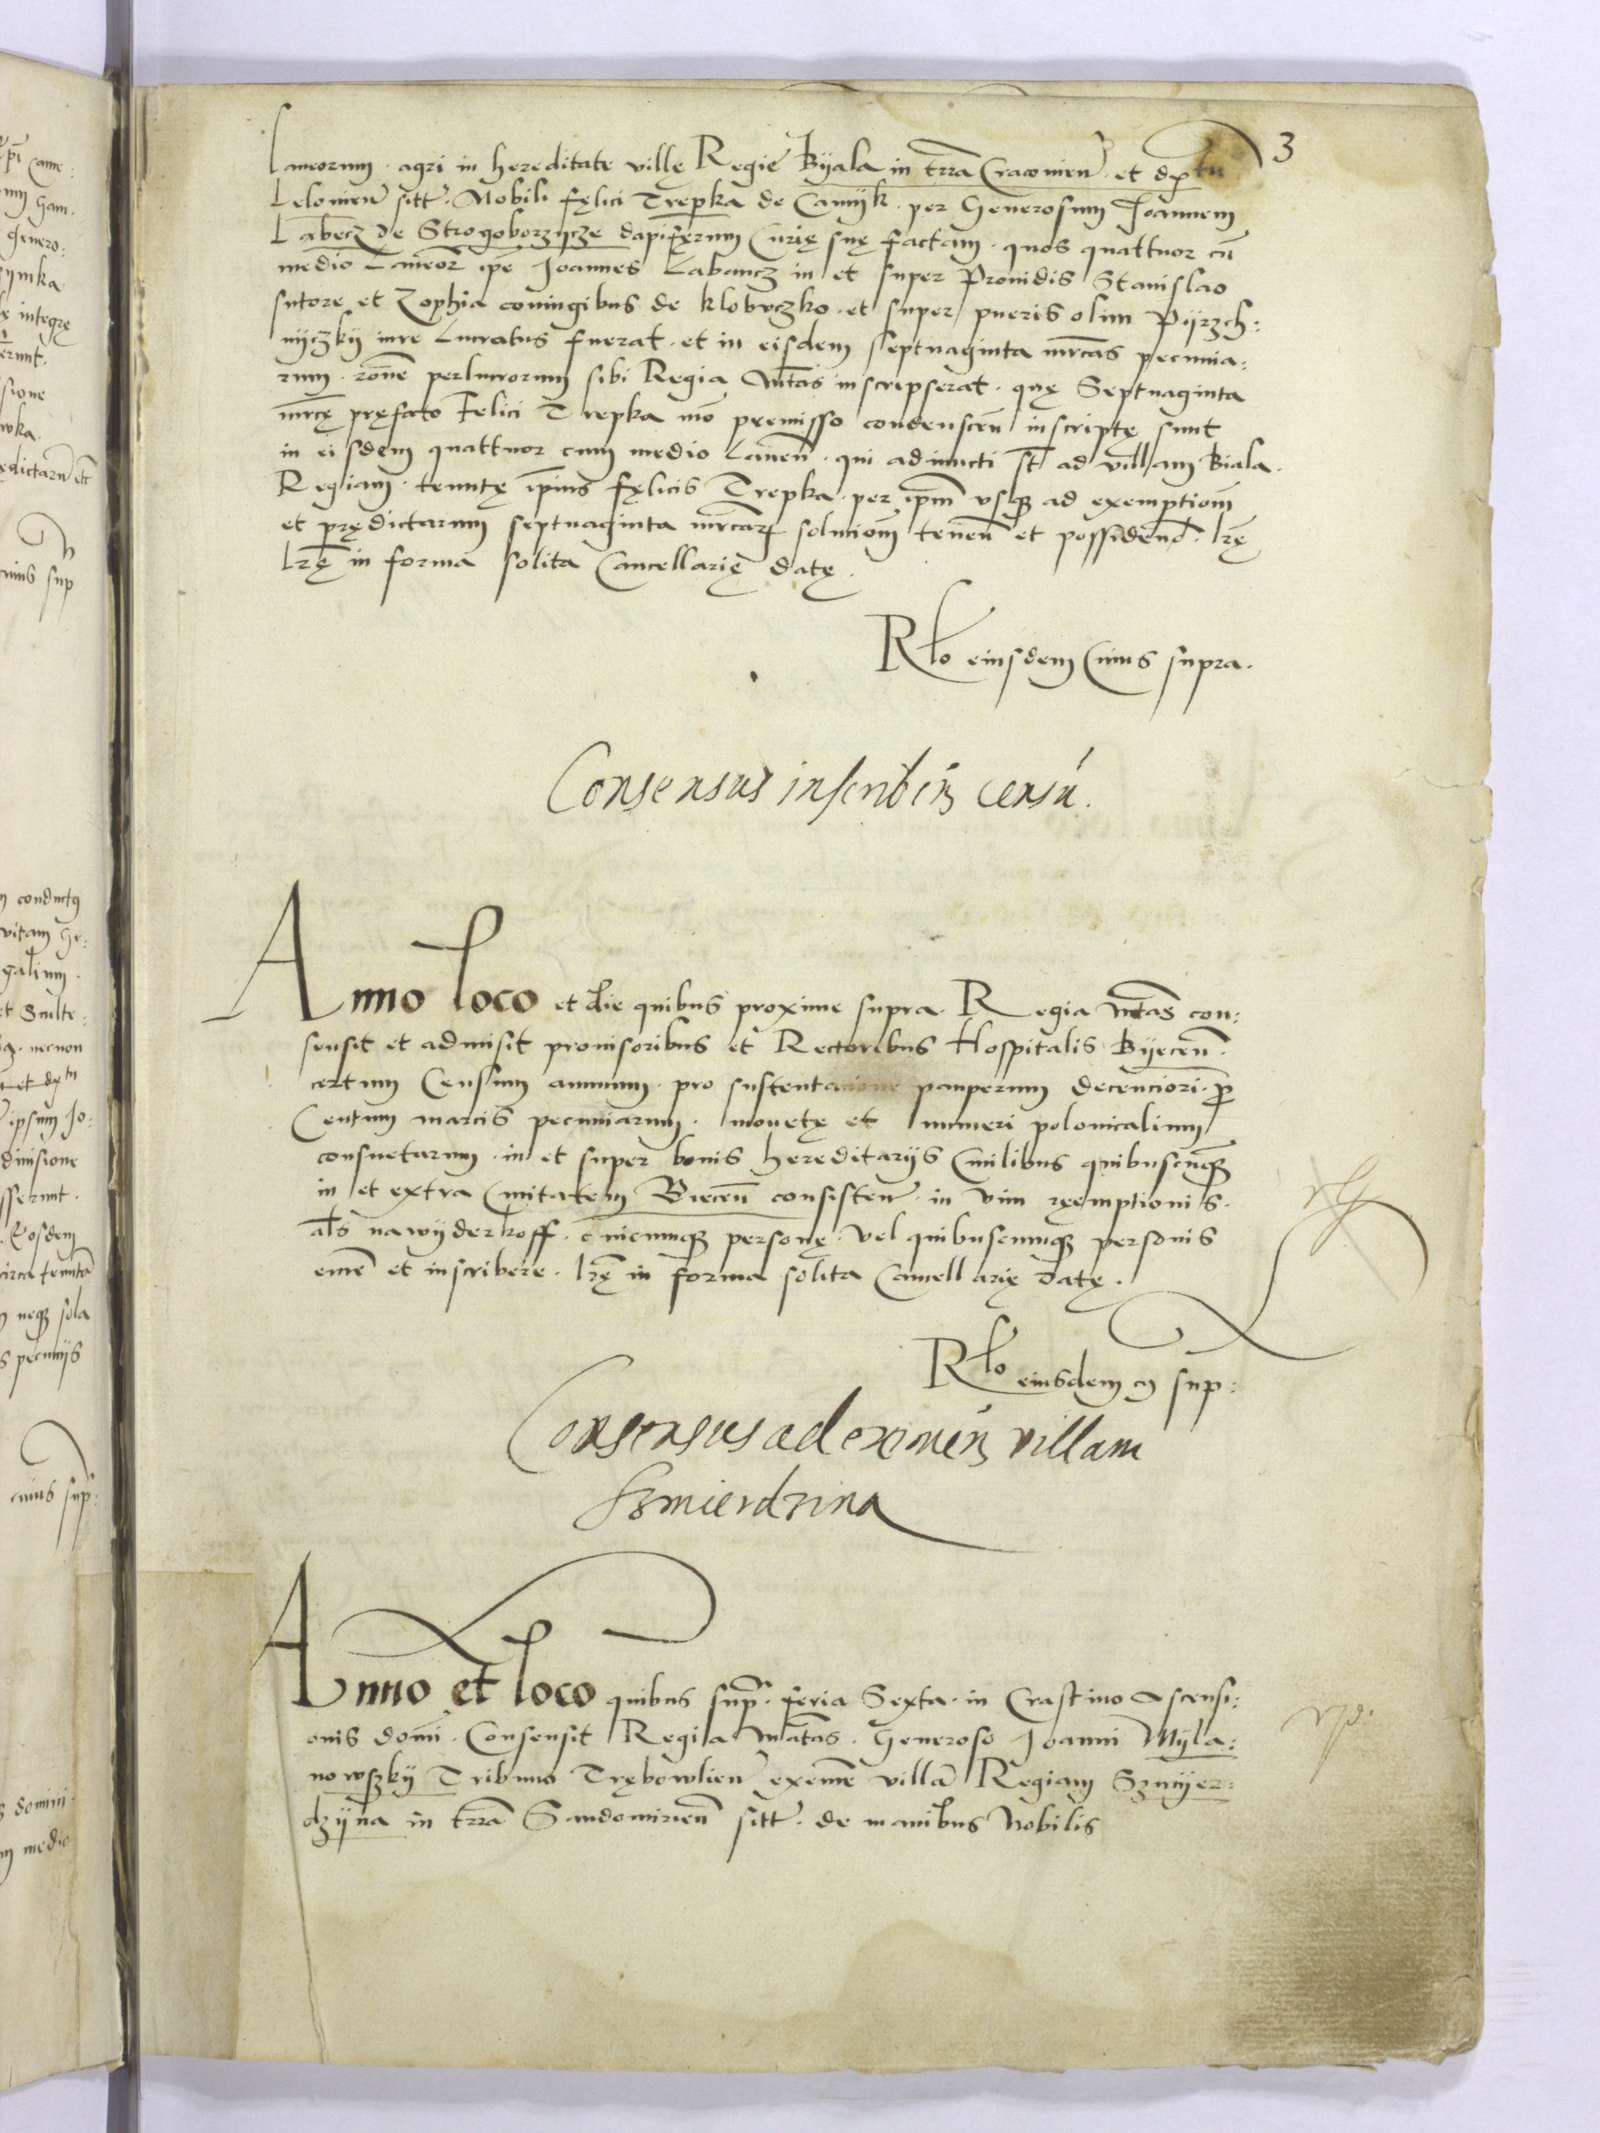 3
Laneorum · agri in hereditate villę Regię Byala in trrã Cracovien̄ · et dp̃tu
Lelovien̄ sitt̃ · Nobili fęlici Trepka de Camyk · per Generosum Joannem
Labęcz de Strogoborzycze dapifęrum Curię suę factam · quos quattuor cũ
medio Laneor̃ ip̃e Joannes Labancz in et super Providis Stanislao
sutore et Zophia coniugibus de Klobvczko · et super pueris olim Pyrzch:
nyczky iure Lucratus fuerat · et in eisdem septuaginta mr̃cas pecunia:
rum · rõne perlucrorum sibi Regia Mtãs inscripserat · quę Septuaginta
mr̃cę pręfato Felici Trepka mõ premisso condenscen̄ inscriptę sunt
in eisdem quattuor cum medio Laneñ · qui adiuncti st̃ ad villam Biala ·
Regiam · tenutę ip̃ius fęlicis Trepka · per ip̃m vsqȝ ad exemptioñ
et prędictarum septuaginta mr̃carꝝ solucioñ tenen̄ et possidend̃ · lr̃ę
lr̃ę in forma solita Cancellarię datę ·
Rlõ eiusdem Cuius supra ·
Consensus inscriben̄ censũ.
Anno loco et die quibus proxime supra · Regia Mtãs con:
sensit et admisit provisoribus et Rectoribus Hospitalis Byecen̄ ·
certum Censum annuum · pro sustentacione pauperum decenciori · p̃
Centum marcis pecuniarum · monetę et numeri polonicalium
consuetarum · in et super bonis hereditarijs Civilibus quibuscunqȝ
in et extra Civitatem Biecen̄ consisten̄ · in vim ręemptionis ·
al̃s nawyderkoff · cuicumqȝ personę · vel quibuscumqȝ personis
emẽ et inscribere · lr̃ę in forma solita Cancellarię datę ·
Rlõ eiusdem cꝰ sup̃:
Consensus ad eximen̄ villam
Szmierdzina
Anno et loco quibus sup̃ · feria Sexta · in Crastino Ascensi:
onis domĩ · Consensit Regia Mtãs · Generoso Joanni Myla:
nowszky Tribuno Trębowlien̄ exemẽ villã Regiam Szmyer:
dzyna in trrã Sandomirien̄ sitt̃ · de manibus Nobilis